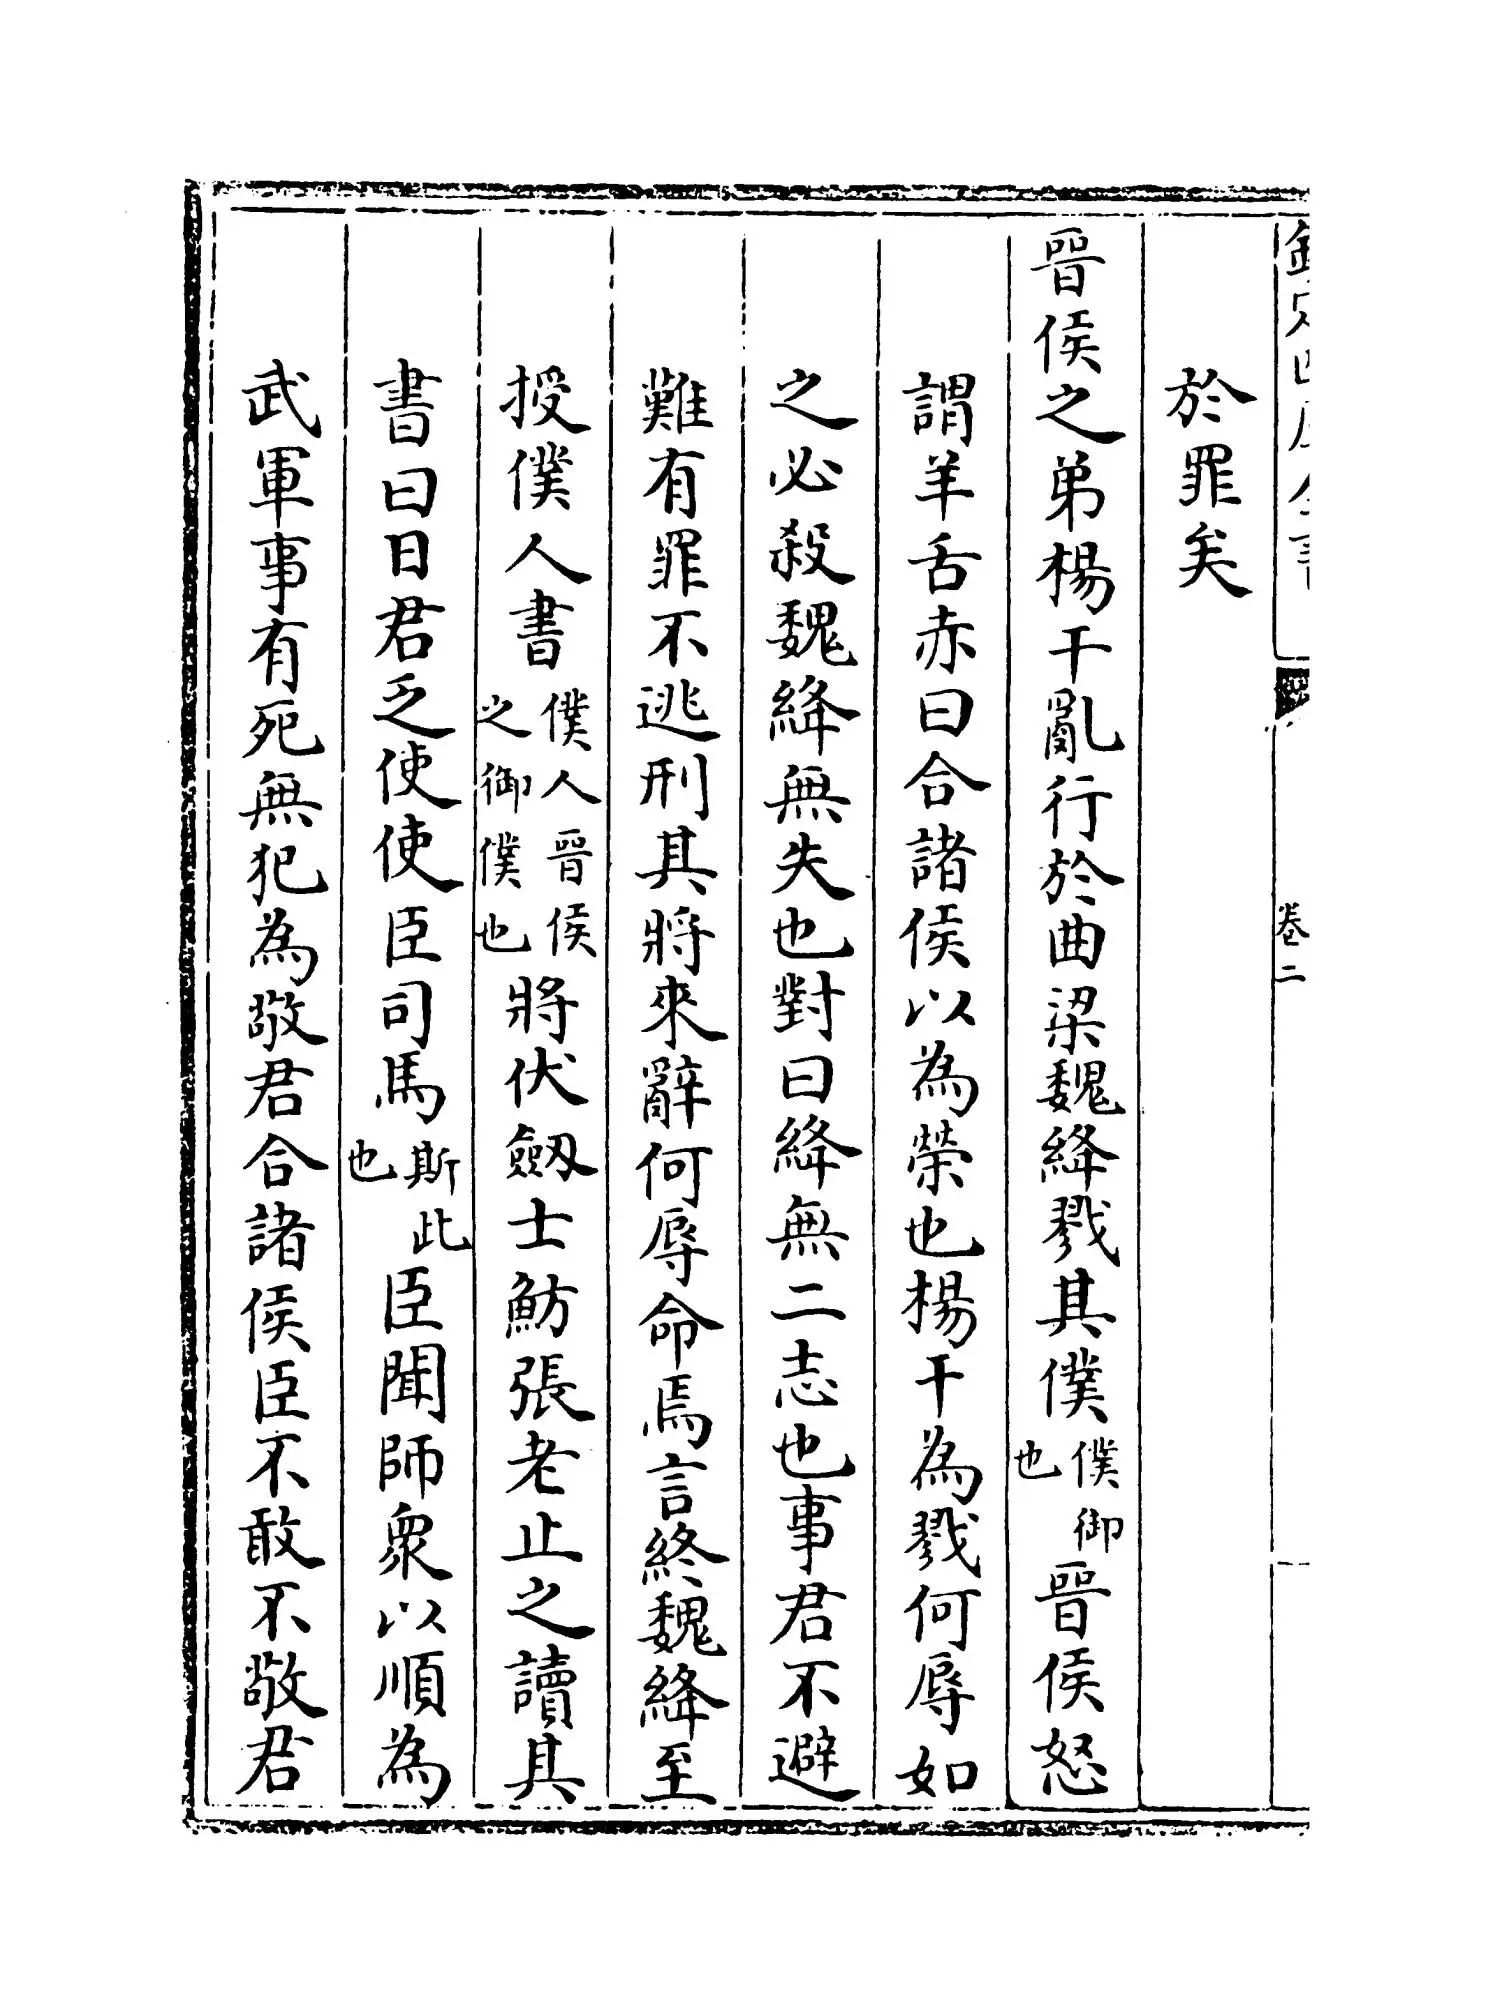 欽定四庫全書
卷二
於罪矣
晉侯之弟楊干亂行於曲梁魏絳戮其僕僕御也晉侯怒
謂羊舌赤曰合諸侯以為榮也楊干為戮何辱如
之必殺魏絳無失也對曰絳無二志也事君不避
難有罪不逃刑其將來辭何辱命焉言終魏絳至
授僕人書僕人晉侯之御僕也將伏劔士魴張老止之讀其
書曰日君乏使使臣司馬斯此也臣聞師衆以順為
武軍事有死無犯為敬君合諸侯臣不敢不敬君